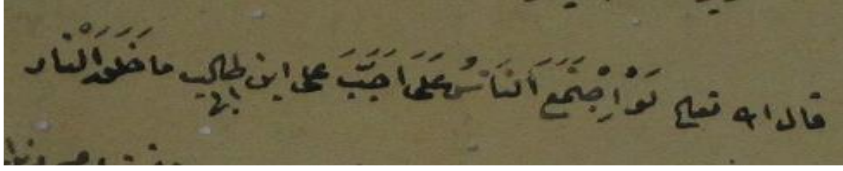 قال الله تعالى لَوْ اِجْتَمَعَ اَلنَاسُ عَلَى احَبَّبَ على ابن ابى طالب ما خَلَقَ اَلْنار